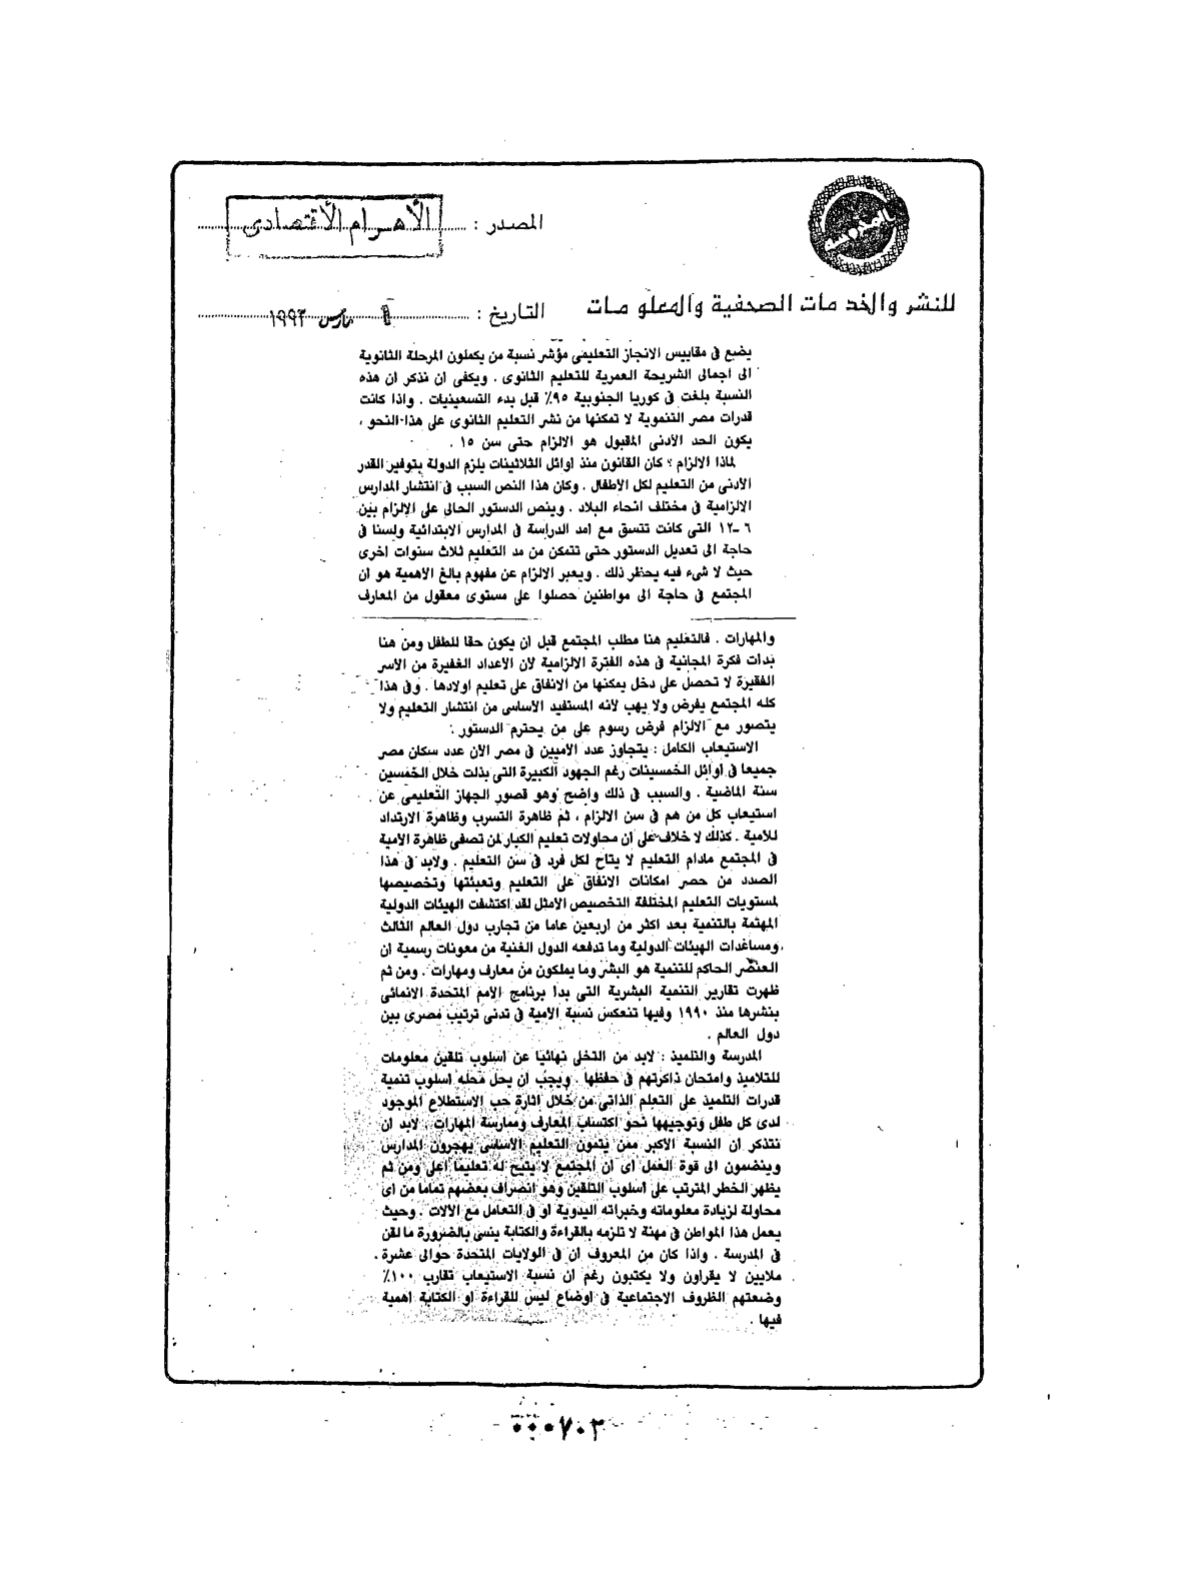 المصدر : الأهرام الأقتصادى
للنشر والخدمات الصحفية والمعلومات
التاريخ : مارس ١٩٩٣
يضع فى مقاييس الانجاز التعليمى مؤشر نسبة من يكملون المرحلة الثانوية
الى اجمالى الشريحة العمرية للتعليم الثانوى . ويكفى ان نذكر ان هذه
النسبة بلغت فى كوريا الجنوبية ٩٥٪ قبل بدء التسعينيات . واذا كانت
قدرات مصر التنموية لا تمكنها من نشر التعليم الثانوى على هذا النحو ،
يكون الحد الأدنى المقبول هو الالزام حتى سن ١٥ .
لماذا الالزام ؟ كان القانون منذ اوائل الثلاثينات يلزم الدولة بتوفير القدر
الأدنى من التعليم لكل الأطفال . وكان هذا النص السبب فى انتشار المدارس
الالزامية فى مختلف انحاء البلاد . وينص الدستور الحالى على الإلزام بين
٦ -١٢ التى كانت تتسق مع امد الدراسة فى المدارس الابتدائية ولسنا فى
حاجة الى تعديل الدستور حتى نتمكن من مد التعليم ثلاث سنوات اخرى
حيث لا شىء فيه يحظر ذلك . ويعبر الالزام عن مفهوم بالغ الأهمية هو ان
المجتمع فى حاجة الى مواطنين حصلوا على مستوى معقول من المعارف
والمهارات . فالتعليم هنا مطلب المجتمع قبل ان يكون حقا للطفل ومن هنا
بدات فكرة المجانية فى هذه الفترة الالزامية لأن الأعداد الغفيرة من الأسر
الفقيرة لا تحصل على دخل يمكنها من الانفاق على تعليم اولادها . وفى هذا
كله المجتمع يفرض ولا يهب لأنه المستفيد الأساسى من انتشار التعليم ولا
يتصور مع الالزام فرض رسوم على من يحترم الدستور .
الاستيعاب الكامل : يتجاوز عدد الأميين فى مصر الآن عدد سكان مصر
جميعا فى اوائل الخمسينات رغم الجهود الكبيرة التى بذلت خلال الخمسين
سنة الماضية . والسبب فى ذلك واضح وهو قصور الجهاز التعليمى عن
استيعاب كل من هم فى سن الالزام ، ثم ظاهرة التسرب وظاهرة الارتداد
للأمية . كذلك لا خلاف على ان محاولات تعليم الكبار لن تصفى ظاهرة الأمية
فى المجتمع مادام التعليم لا يتاح لكل فرد فى سن التعليم . ولابد فى هذا
الصدد من حصر امكانات الانفاق على التعليم وتعبئتها وتخصيصها
لمستويات التعليم المختلفة التخصيص الأمثل لقد اكتشفت الهيئات الدولية
المهتمة بالتنمية بعد اكثر من اربعين عاما من تجارب دول العالم الثالث
ومساعدات الهيئات الدولية وما تدفعه الدول الغنية من معونات رسمية ان
العنصر الحاكم للتنمية هو البشر وما يملكون من معارف ومهارات . ومن ثم
ظهرت تقارير التنمية البشرية التى بدا برنامج الأمم المتحدة الانمائى
بنشرها منذ ١٩٩٠ وفيها تنعكس نسبة الأمية فى تدنى ترتيب مصرى بين
دول العالم .
المدرسة والتلميذ : لابد من التخلى نهائيا عن اسلوب تلقين معلومات
للتلاميذ وامتحان ذاكرتهم فى حفظها . ويجب ان يحل محله اسلوب تنمية
قدرات التلميذ على التعلم الذاتى من خلال اثارة حب الاستطلاع الموجود
لدى كل طفل وتوجيهها نحو اكتساب المعارف وممارسة المهارات . لابد ان
نتذكر ان النسبة الأكبر ممن يتمون التعليم الأساسى يهجرون المدارس
وينضمون الى قوة العمل اى ان المجتمع لا يتيح له تعليما اعلى ومن ثم
يظهر الخطر المترتب على اسلوب التلقين وهو انصراف بعضهم تماما من اى
محاولة لزيادة معلوماته وخبراته اليدوية او فى التعامل مع الآلات . وحيث
يعمل هذا المواطن فى مهنة لا تلزمه بالقراءة والكتابة ينسى بالضرورة ما لقن
فى المدرسة . واذا كان من المعروف ان فى الولايات المتحدة حوالى عشرة
ملايين لا يقراون ولا يكتبون رغم ان نسبة الاستيعاب تقارب ١٠٠٪
وضعتهم الظروف الاجتماعية فى اوضاع ليس للقراءة او الكتابة اهمية
فيها .
٠٠٠٧٠٣